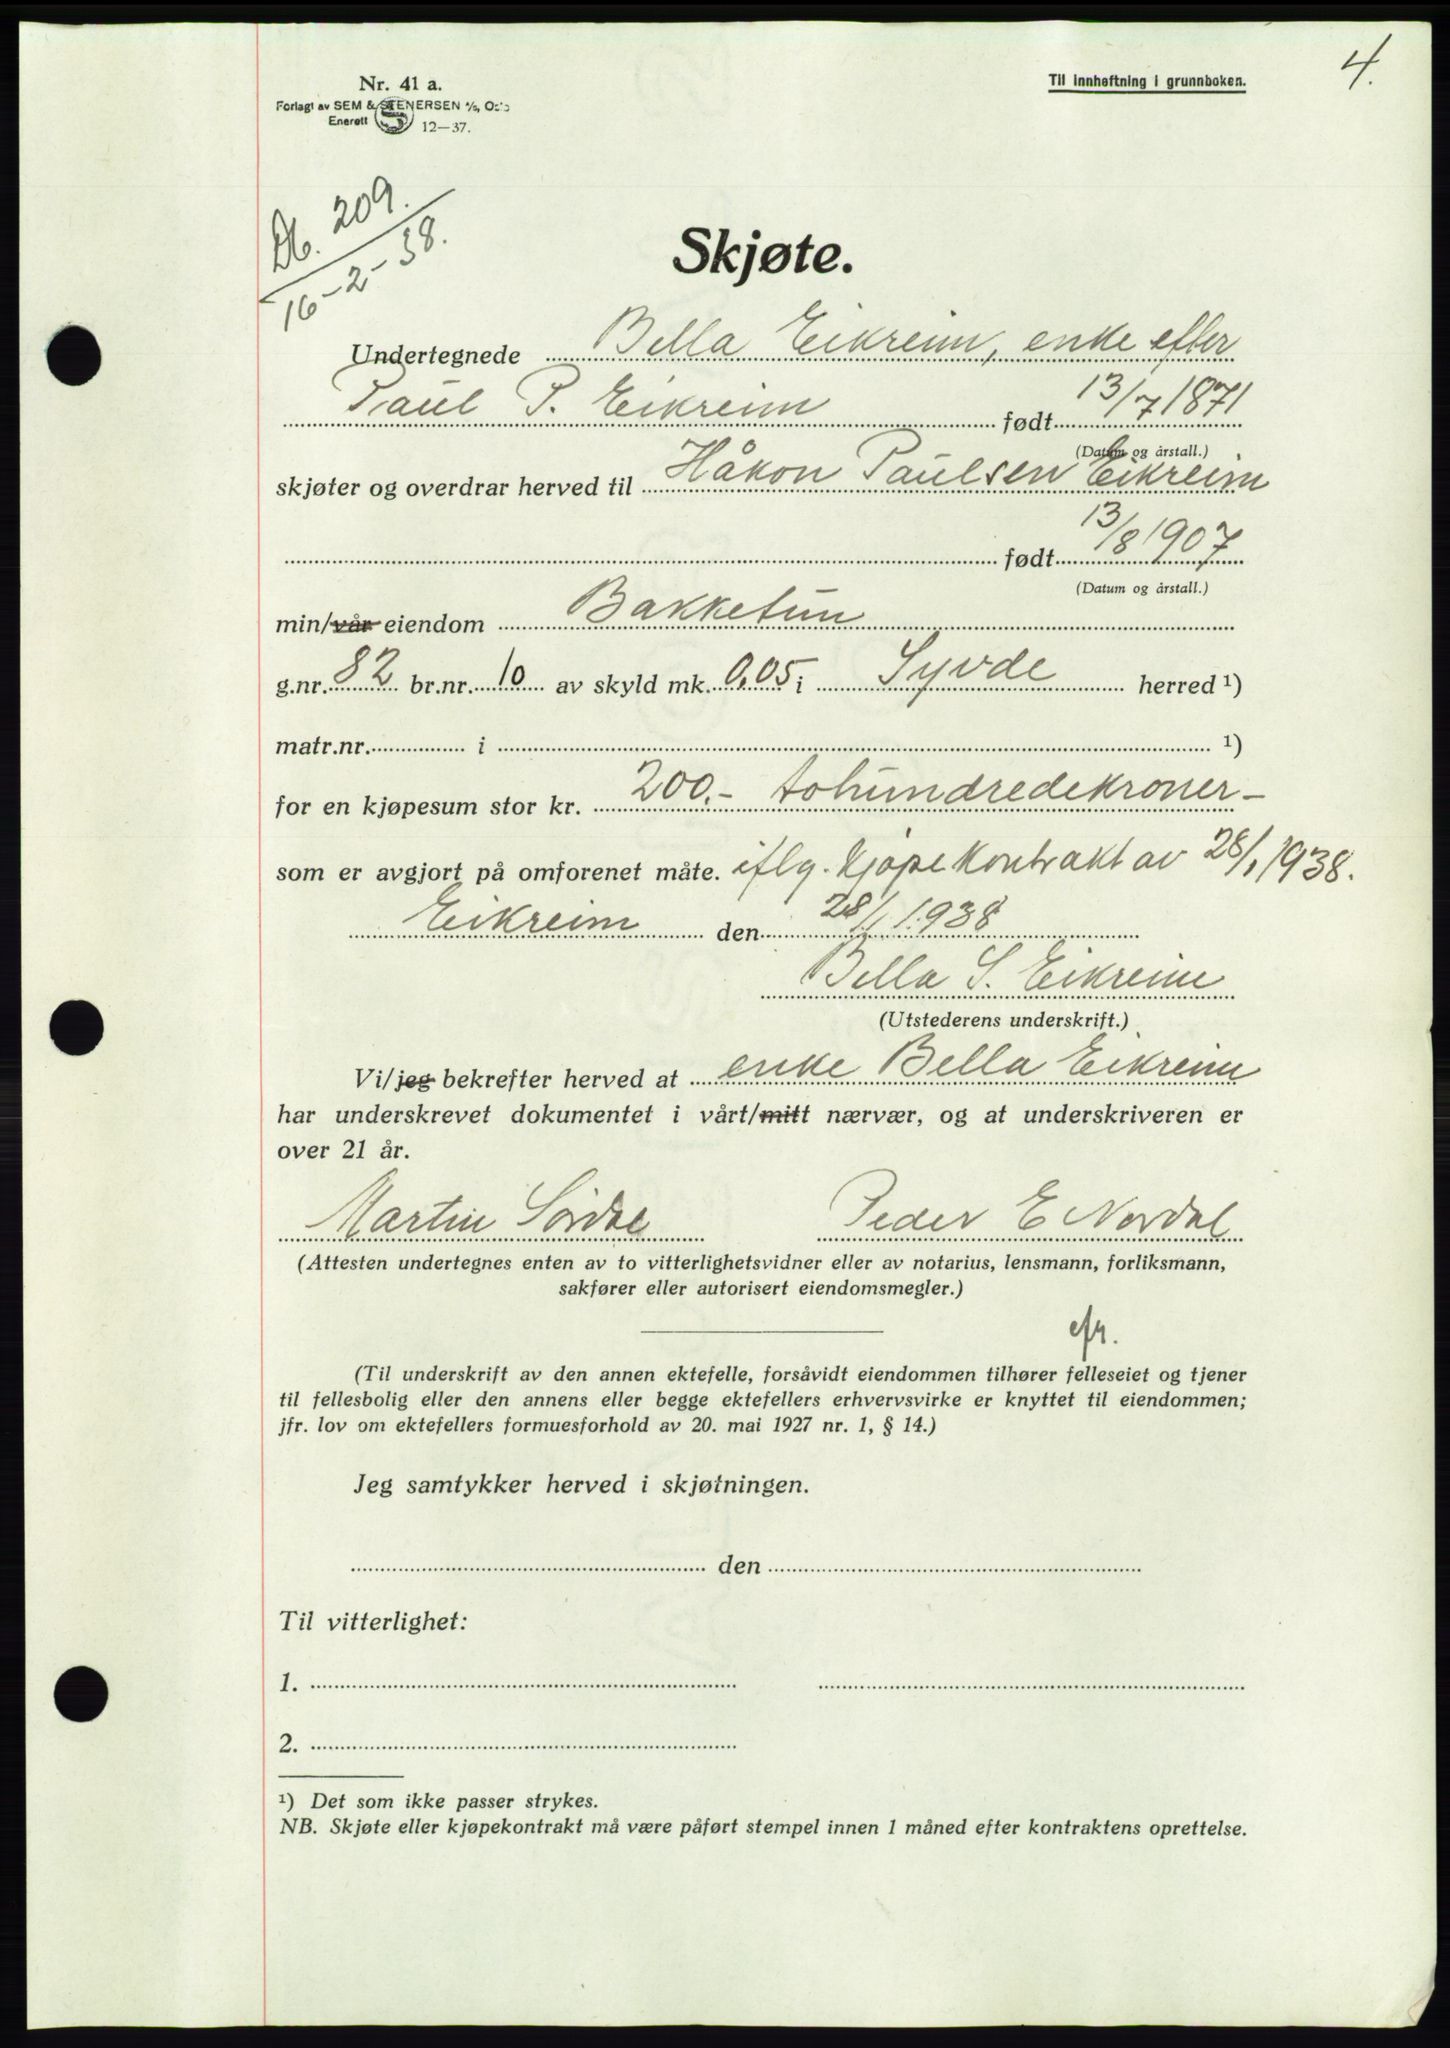 4.
Nr. 41 a.
Til innheftning i grunnboken.
Forlagt av SEM & STENERSEN A/S, Oslo
Enerett
12—37.
Db. 209.
16-2-38.
Skjøte.
Undertegnede Bella Eikreim, enke efter
Paul P. Eikreim født 13/7 1871
(Datum og årstall.)
skjøter og overdrar herved til Håkon Paulsen Eikreim
født 13/8 1907
(Datum og årstall.)
min/vår eiendom Bakketun
g.nr. 82 br.nr. 10 av skyld mk. 0,05 i Syvde herred ¹)
matr.nr. i ¹)
for en kjøpesum stor kr. 200.- tohundredekroner-
som er avgjort på omforenet måte. iflg. kjøpekontrakt av 28/1 1938.
Eikreim den 28/1 1938
Bella S. Eikreim
(Utstederens underskrift.)
Vi/jeg bekrefter herved at enke Bella Eikreim
har underskrevet dokumentet i vårt/mitt nærvær, og at underskriveren er
over 21 år.
Martin Sørdal Peder E Nordal
(Attesten undertegnes enten av to vitterlighetsvidner eller av notarius, lensmann, forliksmann,
sakfører eller autorisert eiendomsmegler.)
(Til underskrift av den annen ektefelle, forsåvidt eiendommen tilhører felleseiet og tjener
til fellesbolig eller den annens eller begge ektefellers erhvervsvirke er knyttet til eiendommen;
jfr. lov om ektefellers formuesforhold av 20. mai 1927 nr. 1, § 14.)
Jeg samtykker herved i skjøtningen.
den
Til vitterlighet:
1.
2.
¹) Det som ikke passer strykes.
NB. Skjøte eller kjøpekontrakt må være påført stempel innen 1 måned efter kontraktens oprettelse.